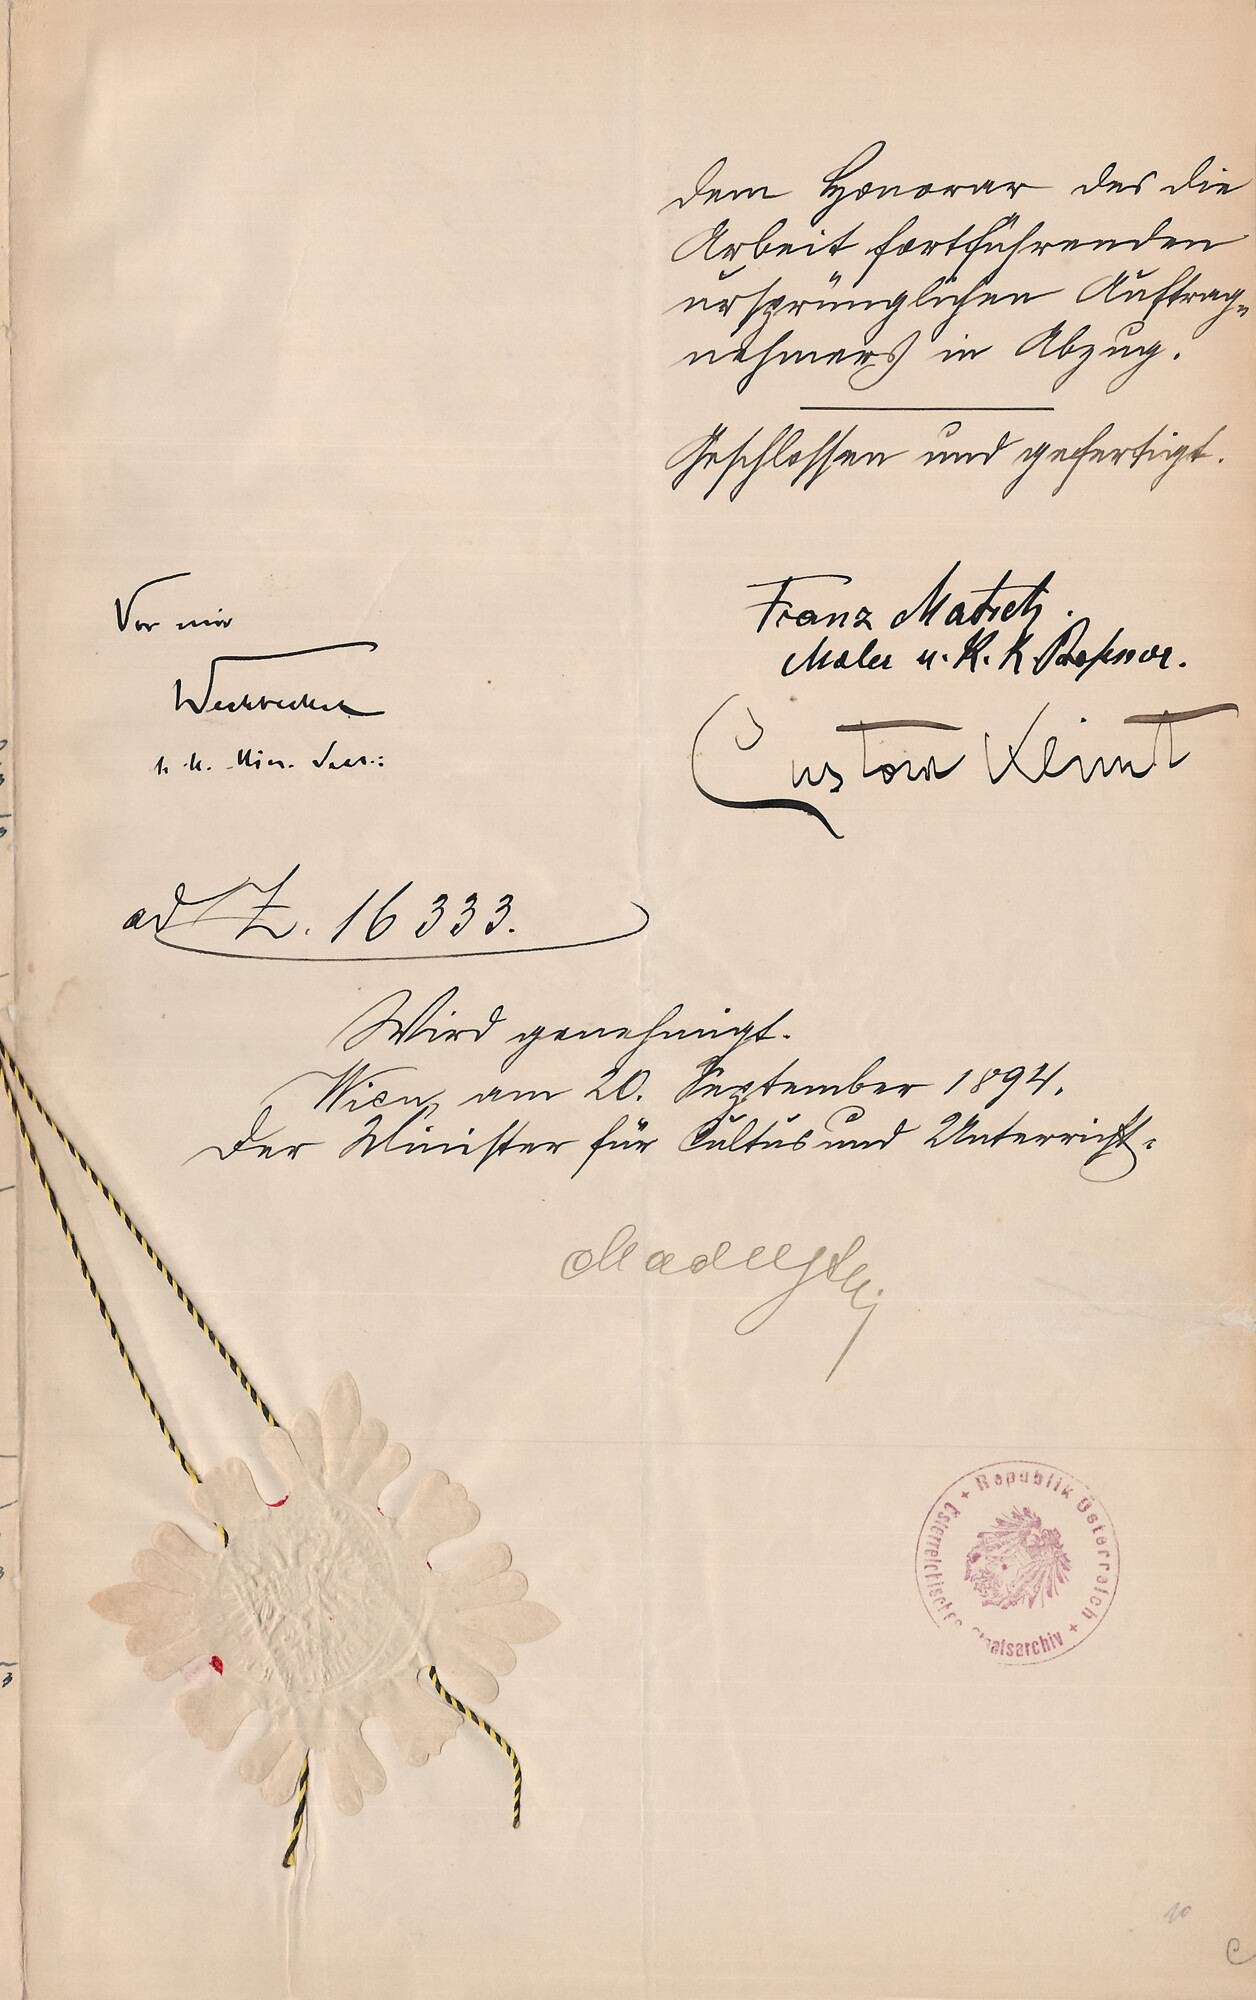 dem Honorar des die
Arbeit fortführenden
ursprünglichen Auftrag-
nehmers in Abzug.
Geschlossen und gefertigt.
Vor mir
k. k. Min. Secr.:
Franz Matsch.
Maler u. K. K. Professor.
Gustav Klimt
ad Z. 16333.
Wird genehmigt.
Wien, am 20. September 1894.
Der Minister für Cultus und Unterricht:
Madeyski
+ Republik Österreich +
Österreichisches Staatsarchiv
10